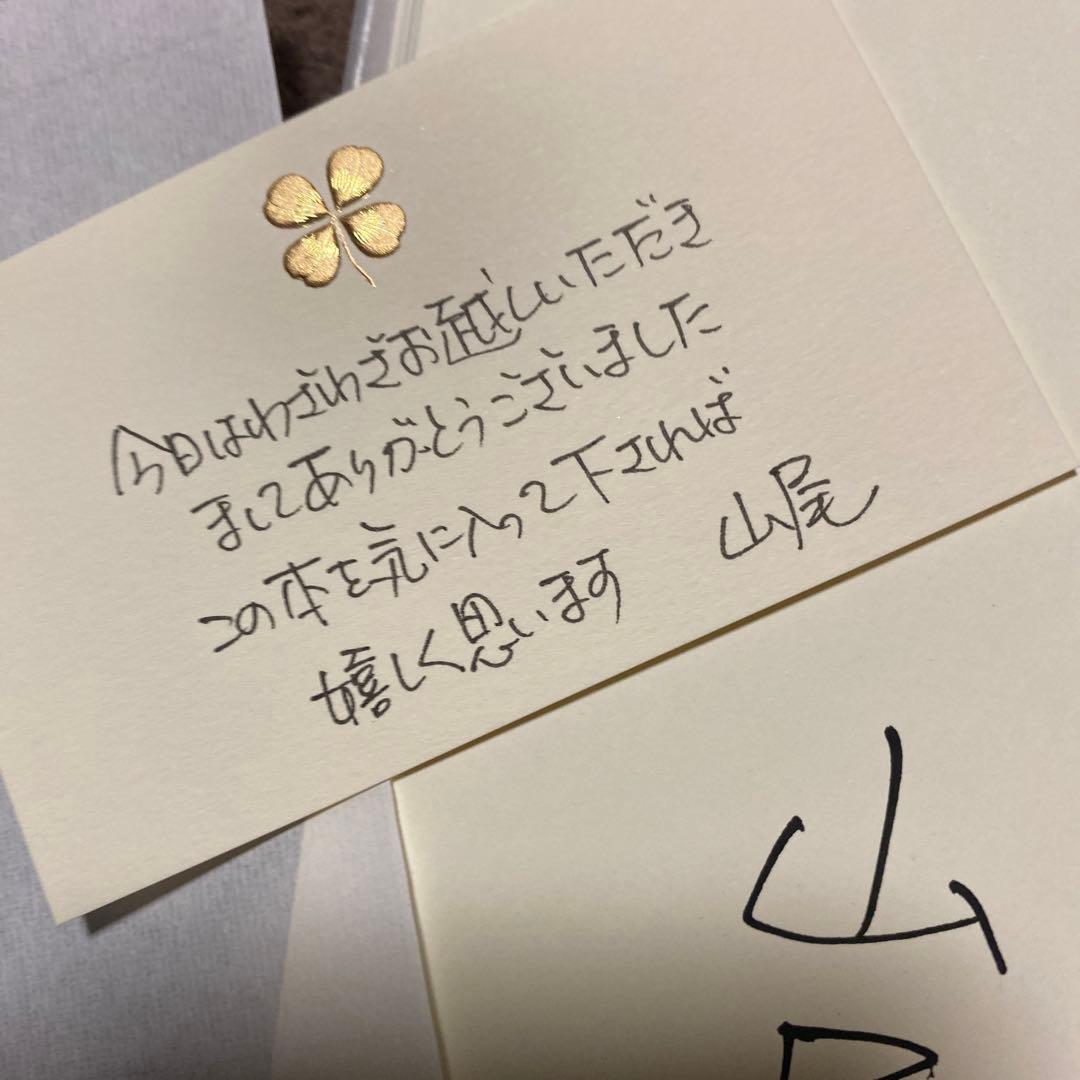 今日はわざわざお越しいただき
ましてありがとうございました
この本を気に入って下されば
嬉しく思います 山尾
山